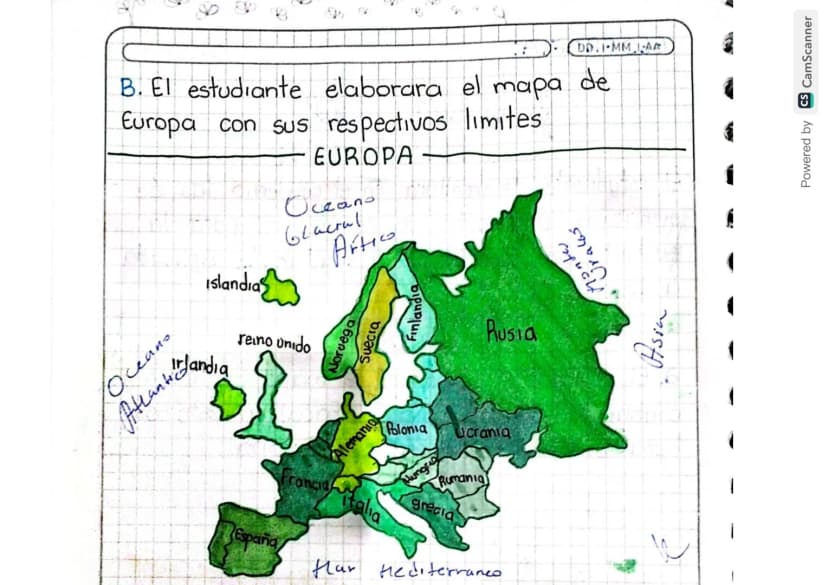 DD.I.MM.I.AA
B. El estudiante elaborara el mapa de
Europa con sus respectivos limites
EUROPA
Oceano
Glacial
Ártico
Montes
Urales
Islandia
Noruega
Suecia
Finlandia
Rusia
Asia
Oceano
Atlantico
reino unido
Irlandia
Alemania
Polonia
Ucrania
Francia
Hungria
Rumania
Italia
grecia
España
Mar Mediterraneo
Powered by CS CamScanner